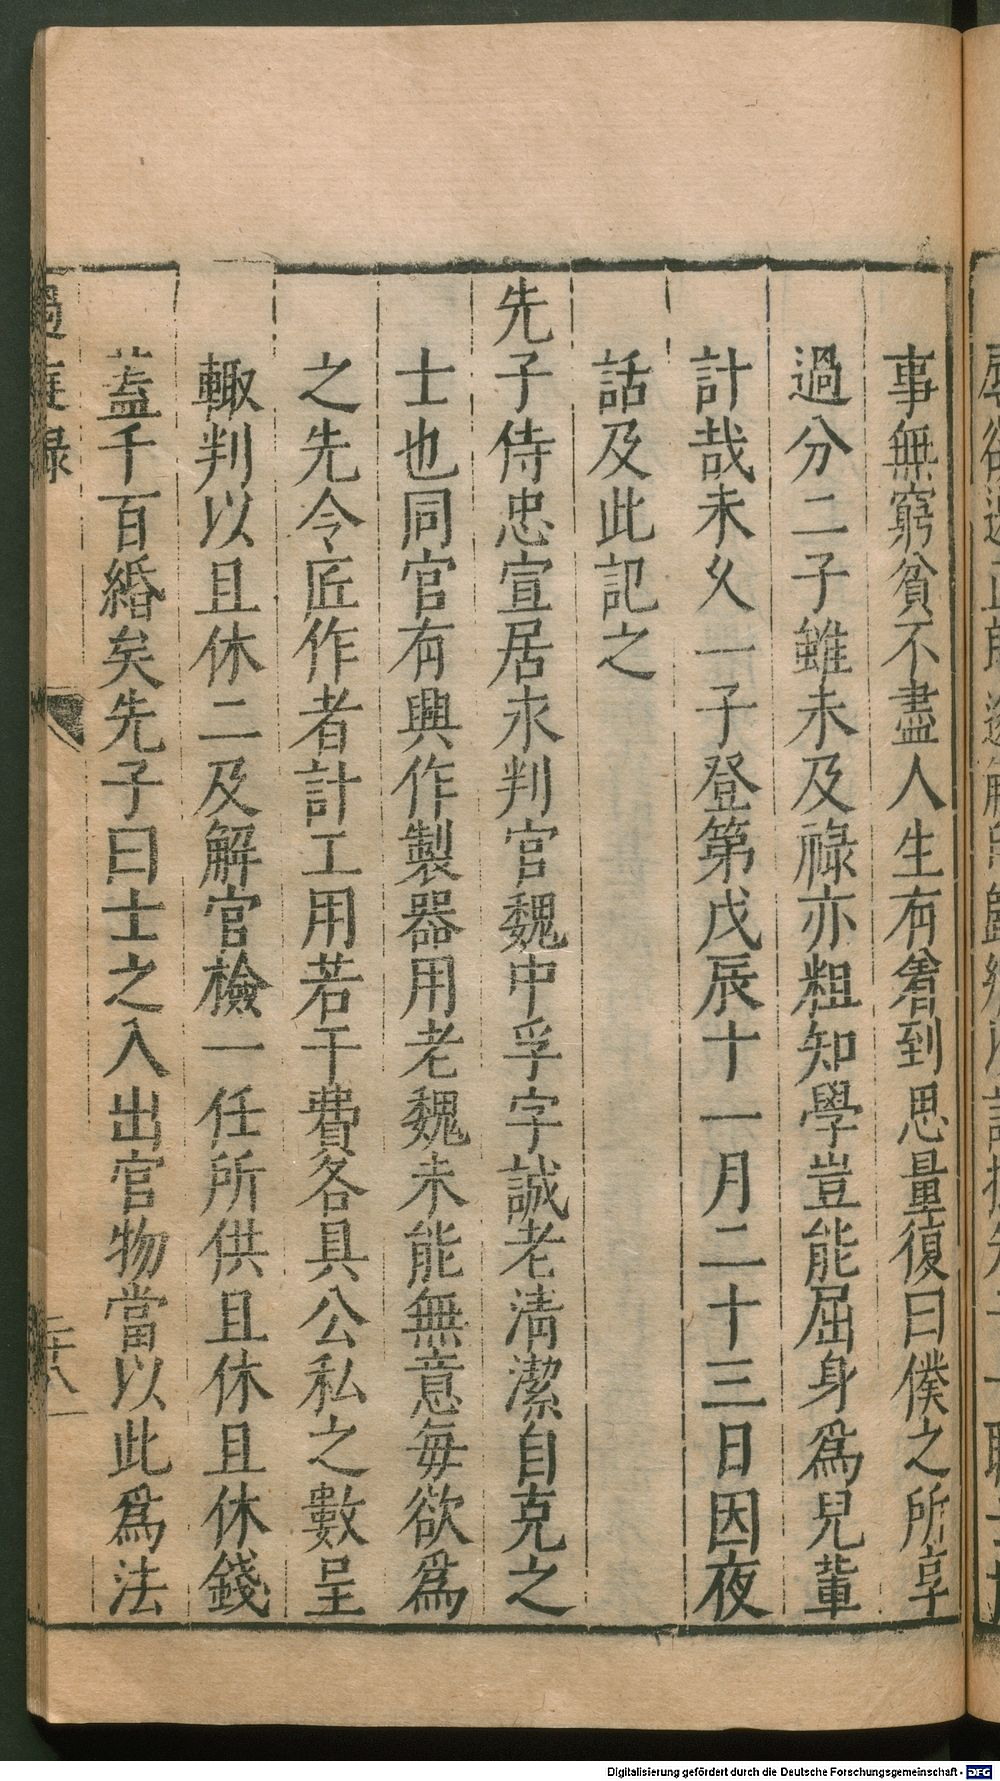 事無窮貧不盡人生有旾到思量復曰僕之所享
過分二子雖未及祿亦粗知學豈能屈身爲兒輩
計哉未久一子登第戊辰十一月二十三日因夜
話及此記之
先子侍忠宣居永判官魏中孚字誠老清潔自克之
士也同官有興作製器用老魏未能無意每欲爲
之先令匠作者計工用若干費各具公私之數呈
輙判以且休二及解官檢一任所供且休且休錢
蓋千百緡矣先子曰士之入出官物當以此爲法
過庭錄
二十八
Digitalisierung gefördert durch die Deutsche Forschungsgemeinschaft - DFG